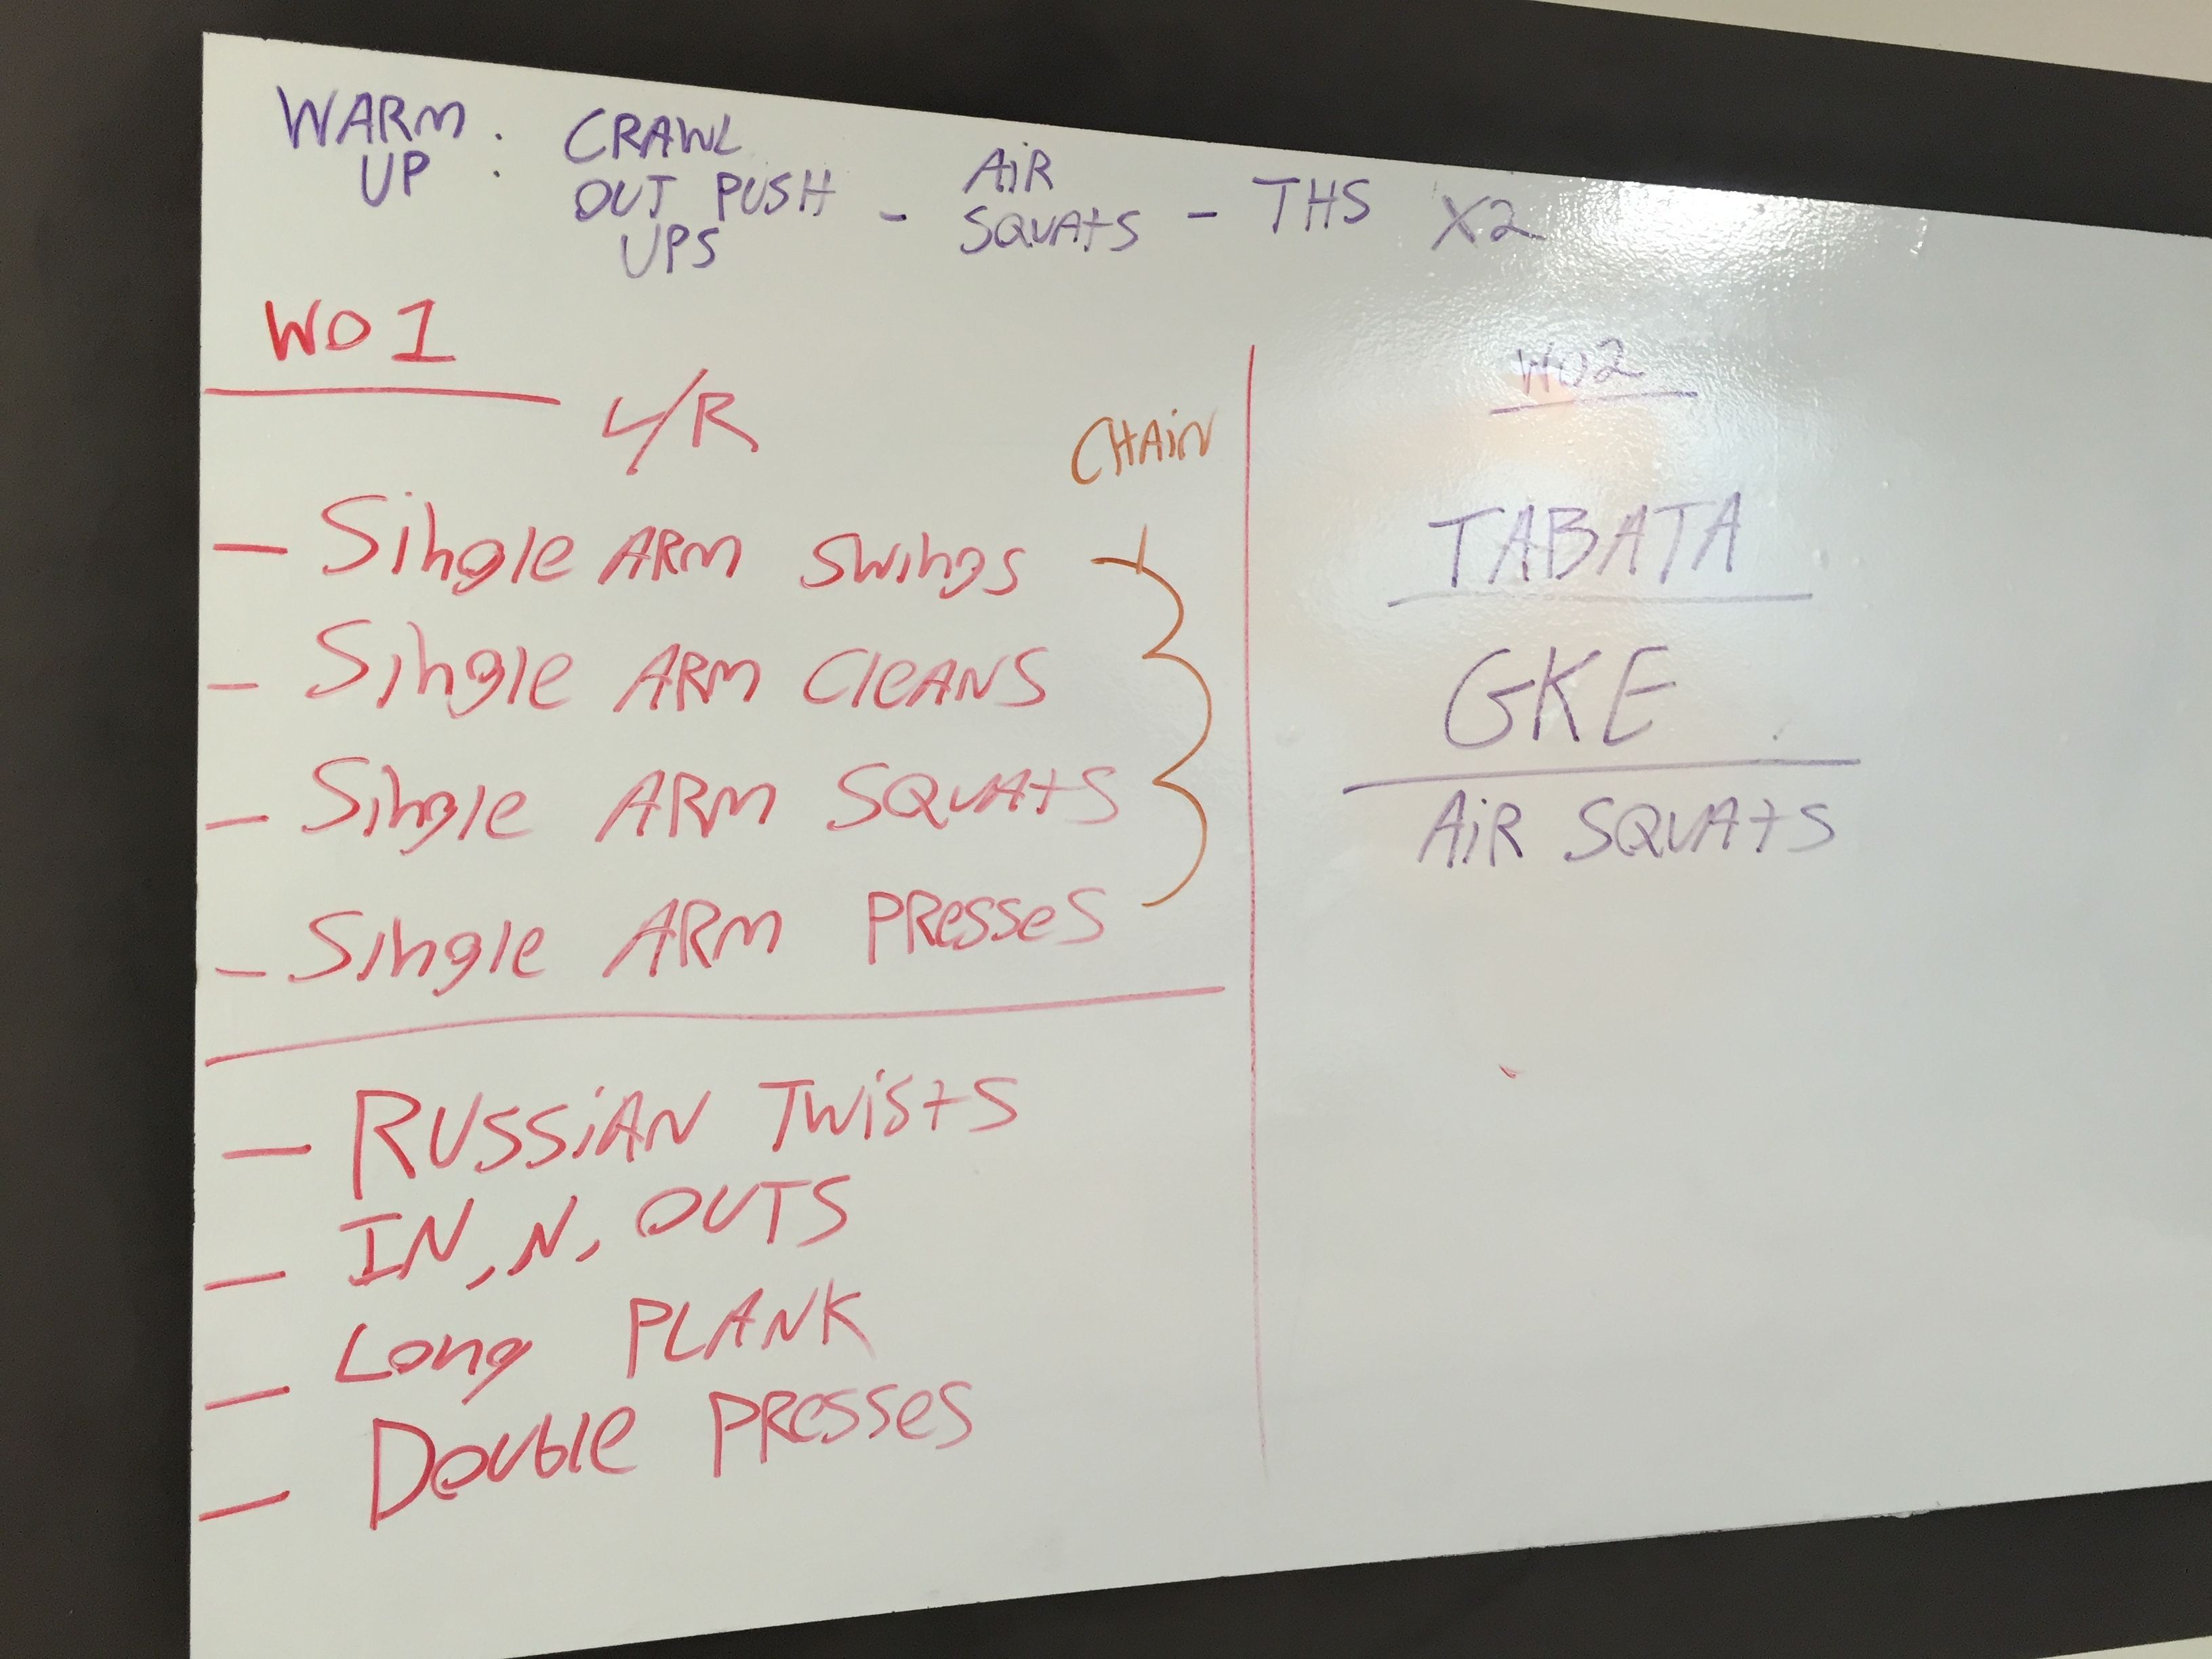 WARM : CRAWL
UP OUT PUSH - AiR SQUAtS - THS X2
UPS
WO 1
L/R
CHAiN
- Single ARM Swings
- Single ARM CleANS
- Single ARM SQUAtS
- Single ARM PResseS
- RUSSiAN TwistS
- IN, N, OUTS
- Long PLANK
- Double PResseS
WO2
TABATA
GKE
AiR SQUAtS